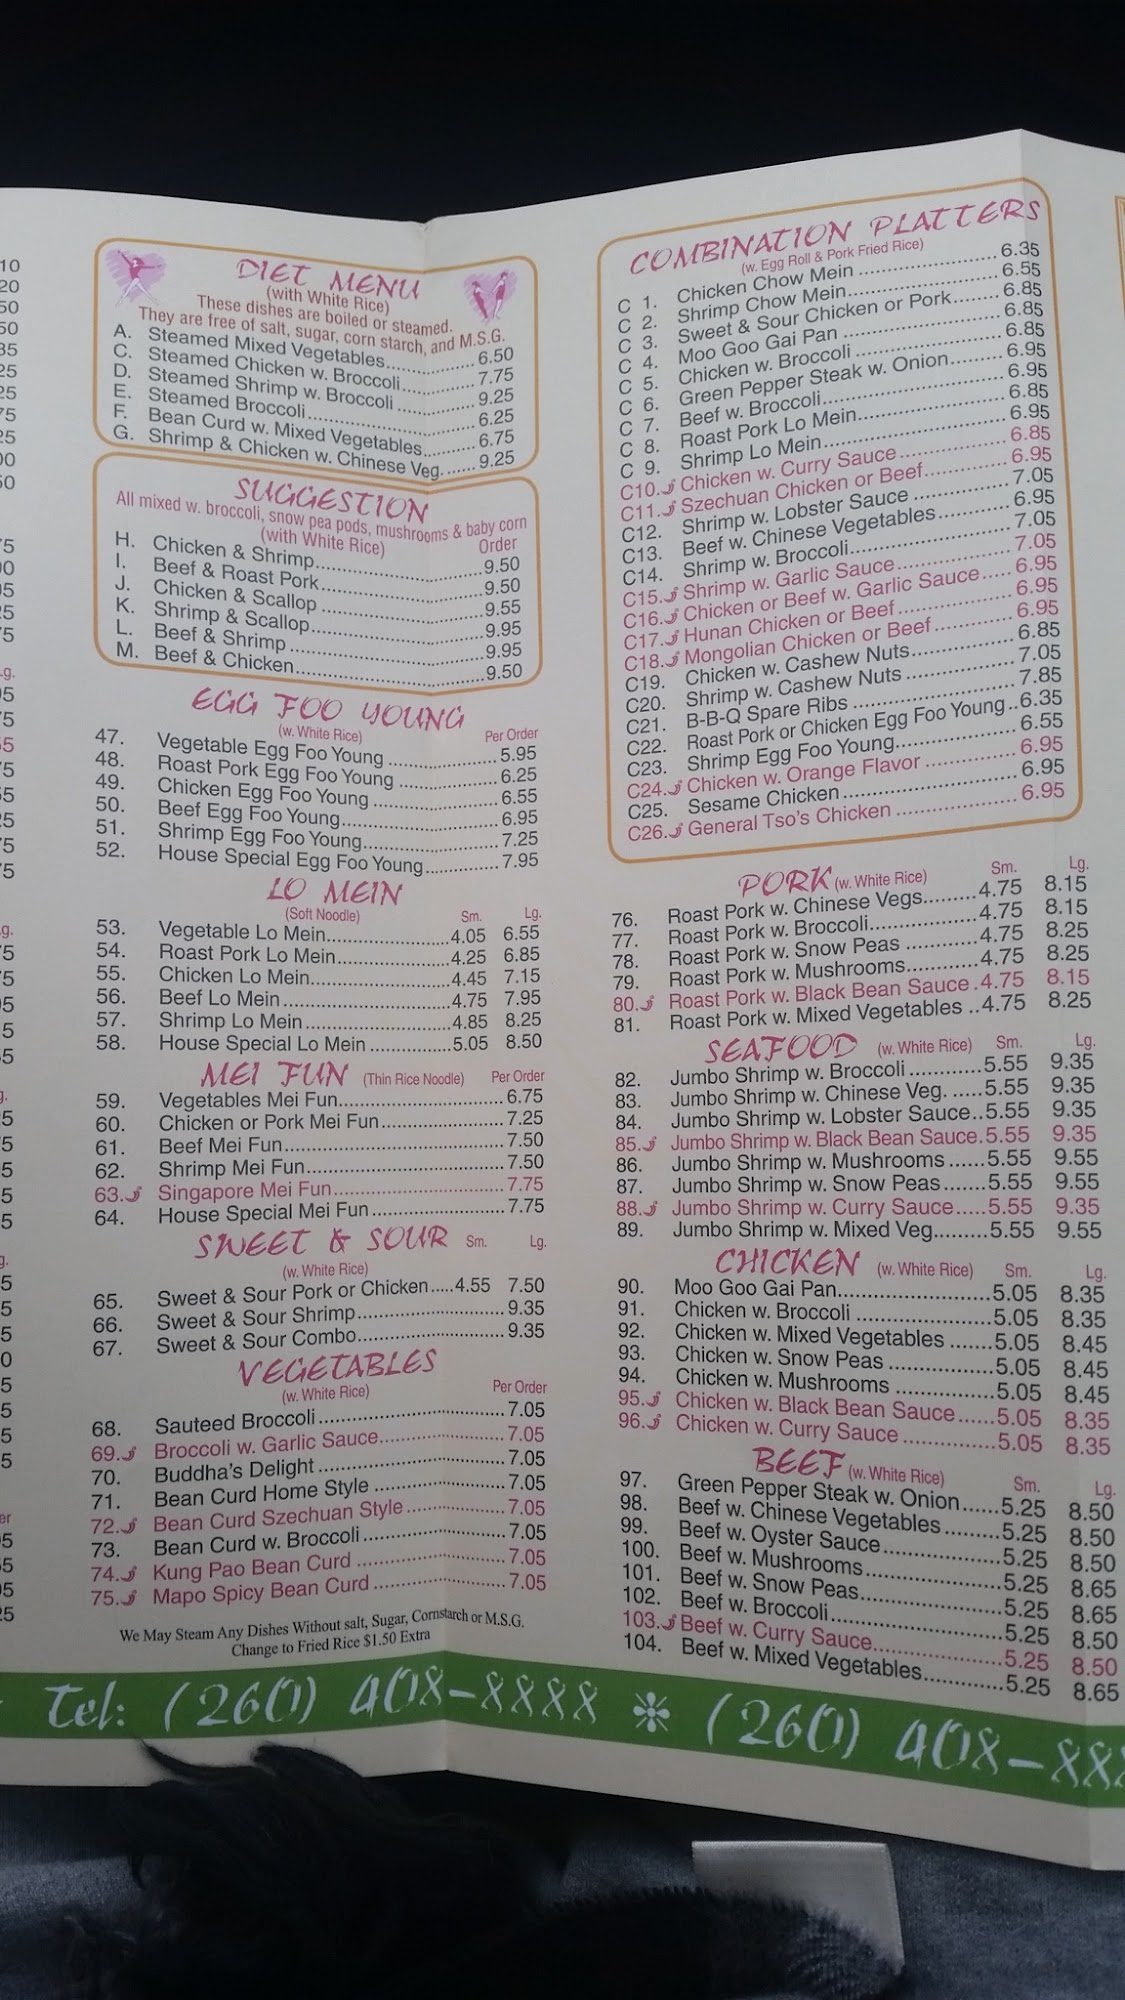 DIET MENU
(with White Rice)
These dishes are boiled or steamed.
They are free of salt, sugar, corn starch, and M.S.G.
A. Steamed Mixed Vegetables 6.50
C. Steamed Chicken w. Broccoli 7.75
D. Steamed Shrimp w. Broccoli 9.25
E. Steamed Broccoli 6.25
F. Bean Curd w. Mixed Vegetables 6.75
G. Shrimp & Chicken w. Chinese Veg. 9.25
SUGGESTION
All mixed w. broccoli, snow pea pods, mushrooms & baby corn
(with White Rice) Order
H. Chicken & Shrimp 9.50
I. Beef & Roast Pork 9.50
J. Chicken & Scallop 9.55
K. Shrimp & Scallop 9.95
L. Beef & Shrimp 9.95
M. Beef & Chicken 9.50
EGG FOO YOUNG
(w. White Rice) Per Order
47. Vegetable Egg Foo Young 5.95
48. Roast Pork Egg Foo Young 6.25
49. Chicken Egg Foo Young 6.55
50. Beef Egg Foo Young 6.95
51. Shrimp Egg Foo Young 7.25
52. House Special Egg Foo Young 7.95
LO MEIN
(Soft Noodle) Sm. Lg.
53. Vegetable Lo Mein 4.05 6.55
54. Roast Pork Lo Mein 4.25 6.85
55. Chicken Lo Mein 4.45 7.15
56. Beef Lo Mein 4.75 7.95
57. Shrimp Lo Mein 4.85 8.25
58. House Special Lo Mein 5.05 8.50
MEI FUN (Thin Rice Noodle) Per Order
59. Vegetables Mei Fun 6.75
60. Chicken or Pork Mei Fun 7.25
61. Beef Mei Fun 7.50
62. Shrimp Mei Fun 7.50
63. Singapore Mei Fun 7.75
64. House Special Mei Fun 7.75
SWEET & SOUR Sm. Lg.
(w. White Rice)
65. Sweet & Sour Pork or Chicken 4.55 7.50
66. Sweet & Sour Shrimp 9.35
67. Sweet & Sour Combo 9.35
VEGETABLES
(w. White Rice) Per Order
68. Sauteed Broccoli 7.05
69. Broccoli w. Garlic Sauce 7.05
70. Buddha's Delight 7.05
71. Bean Curd Home Style 7.05
72. Bean Curd Szechuan Style 7.05
73. Bean Curd w. Broccoli 7.05
74. Kung Pao Bean Curd 7.05
75. Mapo Spicy Bean Curd 7.05
We May Steam Any Dishes Without salt, Sugar, Cornstarch or M.S.G.
Change to Fried Rice $1.50 Extra
COMBINATION PLATTERS
(w. Egg Roll & Pork Fried Rice)
C 1. Chicken Chow Mein 6.35
C 2. Shrimp Chow Mein 6.55
C 3. Sweet & Sour Chicken or Pork 6.85
C 4. Moo Goo Gai Pan 6.85
C 5. Chicken w. Broccoli 6.85
C 6. Green Pepper Steak w. Onion 6.95
C 7. Beef w. Broccoli 6.95
C 8. Roast Pork Lo Mein 6.85
C 9. Shrimp Lo Mein 6.95
C10. Chicken w. Curry Sauce 6.85
C11. Szechuan Chicken or Beef 6.95
C12. Shrimp w. Lobster Sauce 7.05
C13. Beef w. Chinese Vegetables 6.95
C14. Shrimp w. Broccoli 7.05
C15. Shrimp w. Garlic Sauce 7.05
C16. Chicken or Beef w. Garlic Sauce 6.95
C17. Hunan Chicken or Beef 6.95
C18. Mongolian Chicken or Beef 6.95
C19. Chicken w. Cashew Nuts 6.85
C20. Shrimp w. Cashew Nuts 7.05
C21. B-B-Q Spare Ribs 7.85
C22. Roast Pork or Chicken Egg Foo Young 6.35
C23. Shrimp Egg Foo Young 6.55
C24. Chicken w. Orange Flavor 6.95
C25. Sesame Chicken 6.95
C26. General Tso's Chicken 6.95
PORK (w. White Rice) Sm. Lg.
76. Roast Pork w. Chinese Vegs 4.75 8.15
77. Roast Pork w. Broccoli 4.75 8.15
78. Roast Pork w. Snow Peas 4.75 8.25
79. Roast Pork w. Mushrooms 4.75 8.25
80. Roast Pork w. Black Bean Sauce 4.75 8.15
81. Roast Pork w. Mixed Vegetables 4.75 8.25
SEAFOOD (w. White Rice) Sm. Lg.
82. Jumbo Shrimp w. Broccoli 5.55 9.35
83. Jumbo Shrimp w. Chinese Veg. 5.55 9.35
84. Jumbo Shrimp w. Lobster Sauce 5.55 9.35
85. Jumbo Shrimp w. Black Bean Sauce 5.55 9.35
86. Jumbo Shrimp w. Mushrooms 5.55 9.55
87. Jumbo Shrimp w. Snow Peas 5.55 9.55
88. Jumbo Shrimp w. Curry Sauce 5.55 9.35
89. Jumbo Shrimp w. Mixed Veg. 5.55 9.55
CHICKEN (w. White Rice) Sm. Lg.
90. Moo Goo Gai Pan 5.05 8.35
91. Chicken w. Broccoli 5.05 8.35
92. Chicken w. Mixed Vegetables 5.05 8.45
93. Chicken w. Snow Peas 5.05 8.45
94. Chicken w. Mushrooms 5.05 8.45
95. Chicken w. Black Bean Sauce 5.05 8.35
96. Chicken w. Curry Sauce 5.05 8.35
BEEF (w. White Rice) Sm. Lg.
97. Green Pepper Steak w. Onion 5.25 8.50
98. Beef w. Chinese Vegetables 5.25 8.50
99. Beef w. Oyster Sauce 5.25 8.50
100. Beef w. Mushrooms 5.25 8.65
101. Beef w. Snow Peas 5.25 8.65
102. Beef w. Broccoli 5.25 8.50
103. Beef w. Curry Sauce 5.25 8.50
104. Beef w. Mixed Vegetables 5.25 8.65
Tel: (260) 408-8888 (260) 408-888